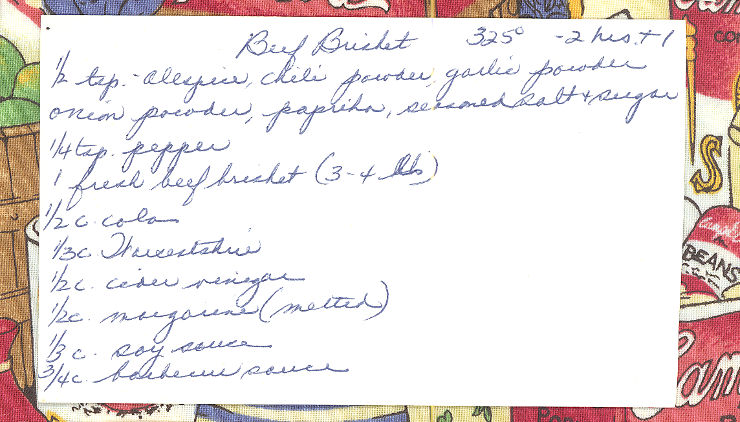 Beef Brisket 325° - 2 hrs. + 1
1/2 tsp. - allspice, chili powder, garlic powder
onion powder, paprika, seasoned salt + sugar
1/4 tsp. pepper
1 fresh beef brisket (3-4 lbs)
1/2 c. cola
1/3 c
1/2 c. cider vinegar
1/2 c. margarine (melted)
1/3 c. soy sauce
3/4 c. barbecue sauce
S
Campbell's
BEANS
Cam